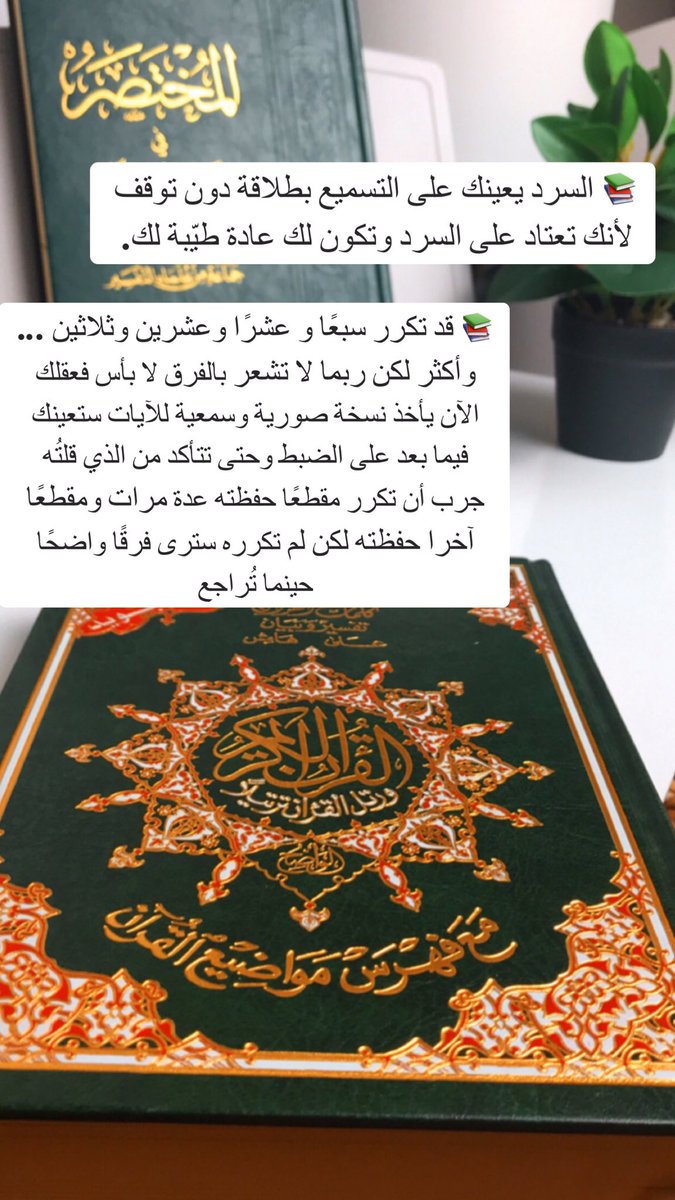 المختصر
في
📚 السرد يعينك على التسميع بطلاقة دون توقف
لأنك تعتاد على السرد وتكون لك عادة طيّبة لك.
جماعة من علماء التفسير
📚 قد تكرر سبعًا و عشرًا وعشرين وثلاثين ...
وأكثر لكن ربما لا تشعر بالفرق لا بأس فعقلك
الآن يأخذ نسخة صورية وسمعية للآيات ستعينك
فيما بعد على الضبط وحتى تتأكد من الذي قلتُه
جرب أن تكرر مقطعًا حفظته عدة مرات ومقطعًا
آخرا حفظته لكن لم تكرره سترى فرقًا واضحًا
حينما تُراجع
تفسير وبيان
القرآن الكريم
ورتل القرآن ترتيلا
مع فهرس مواضيع القرآن